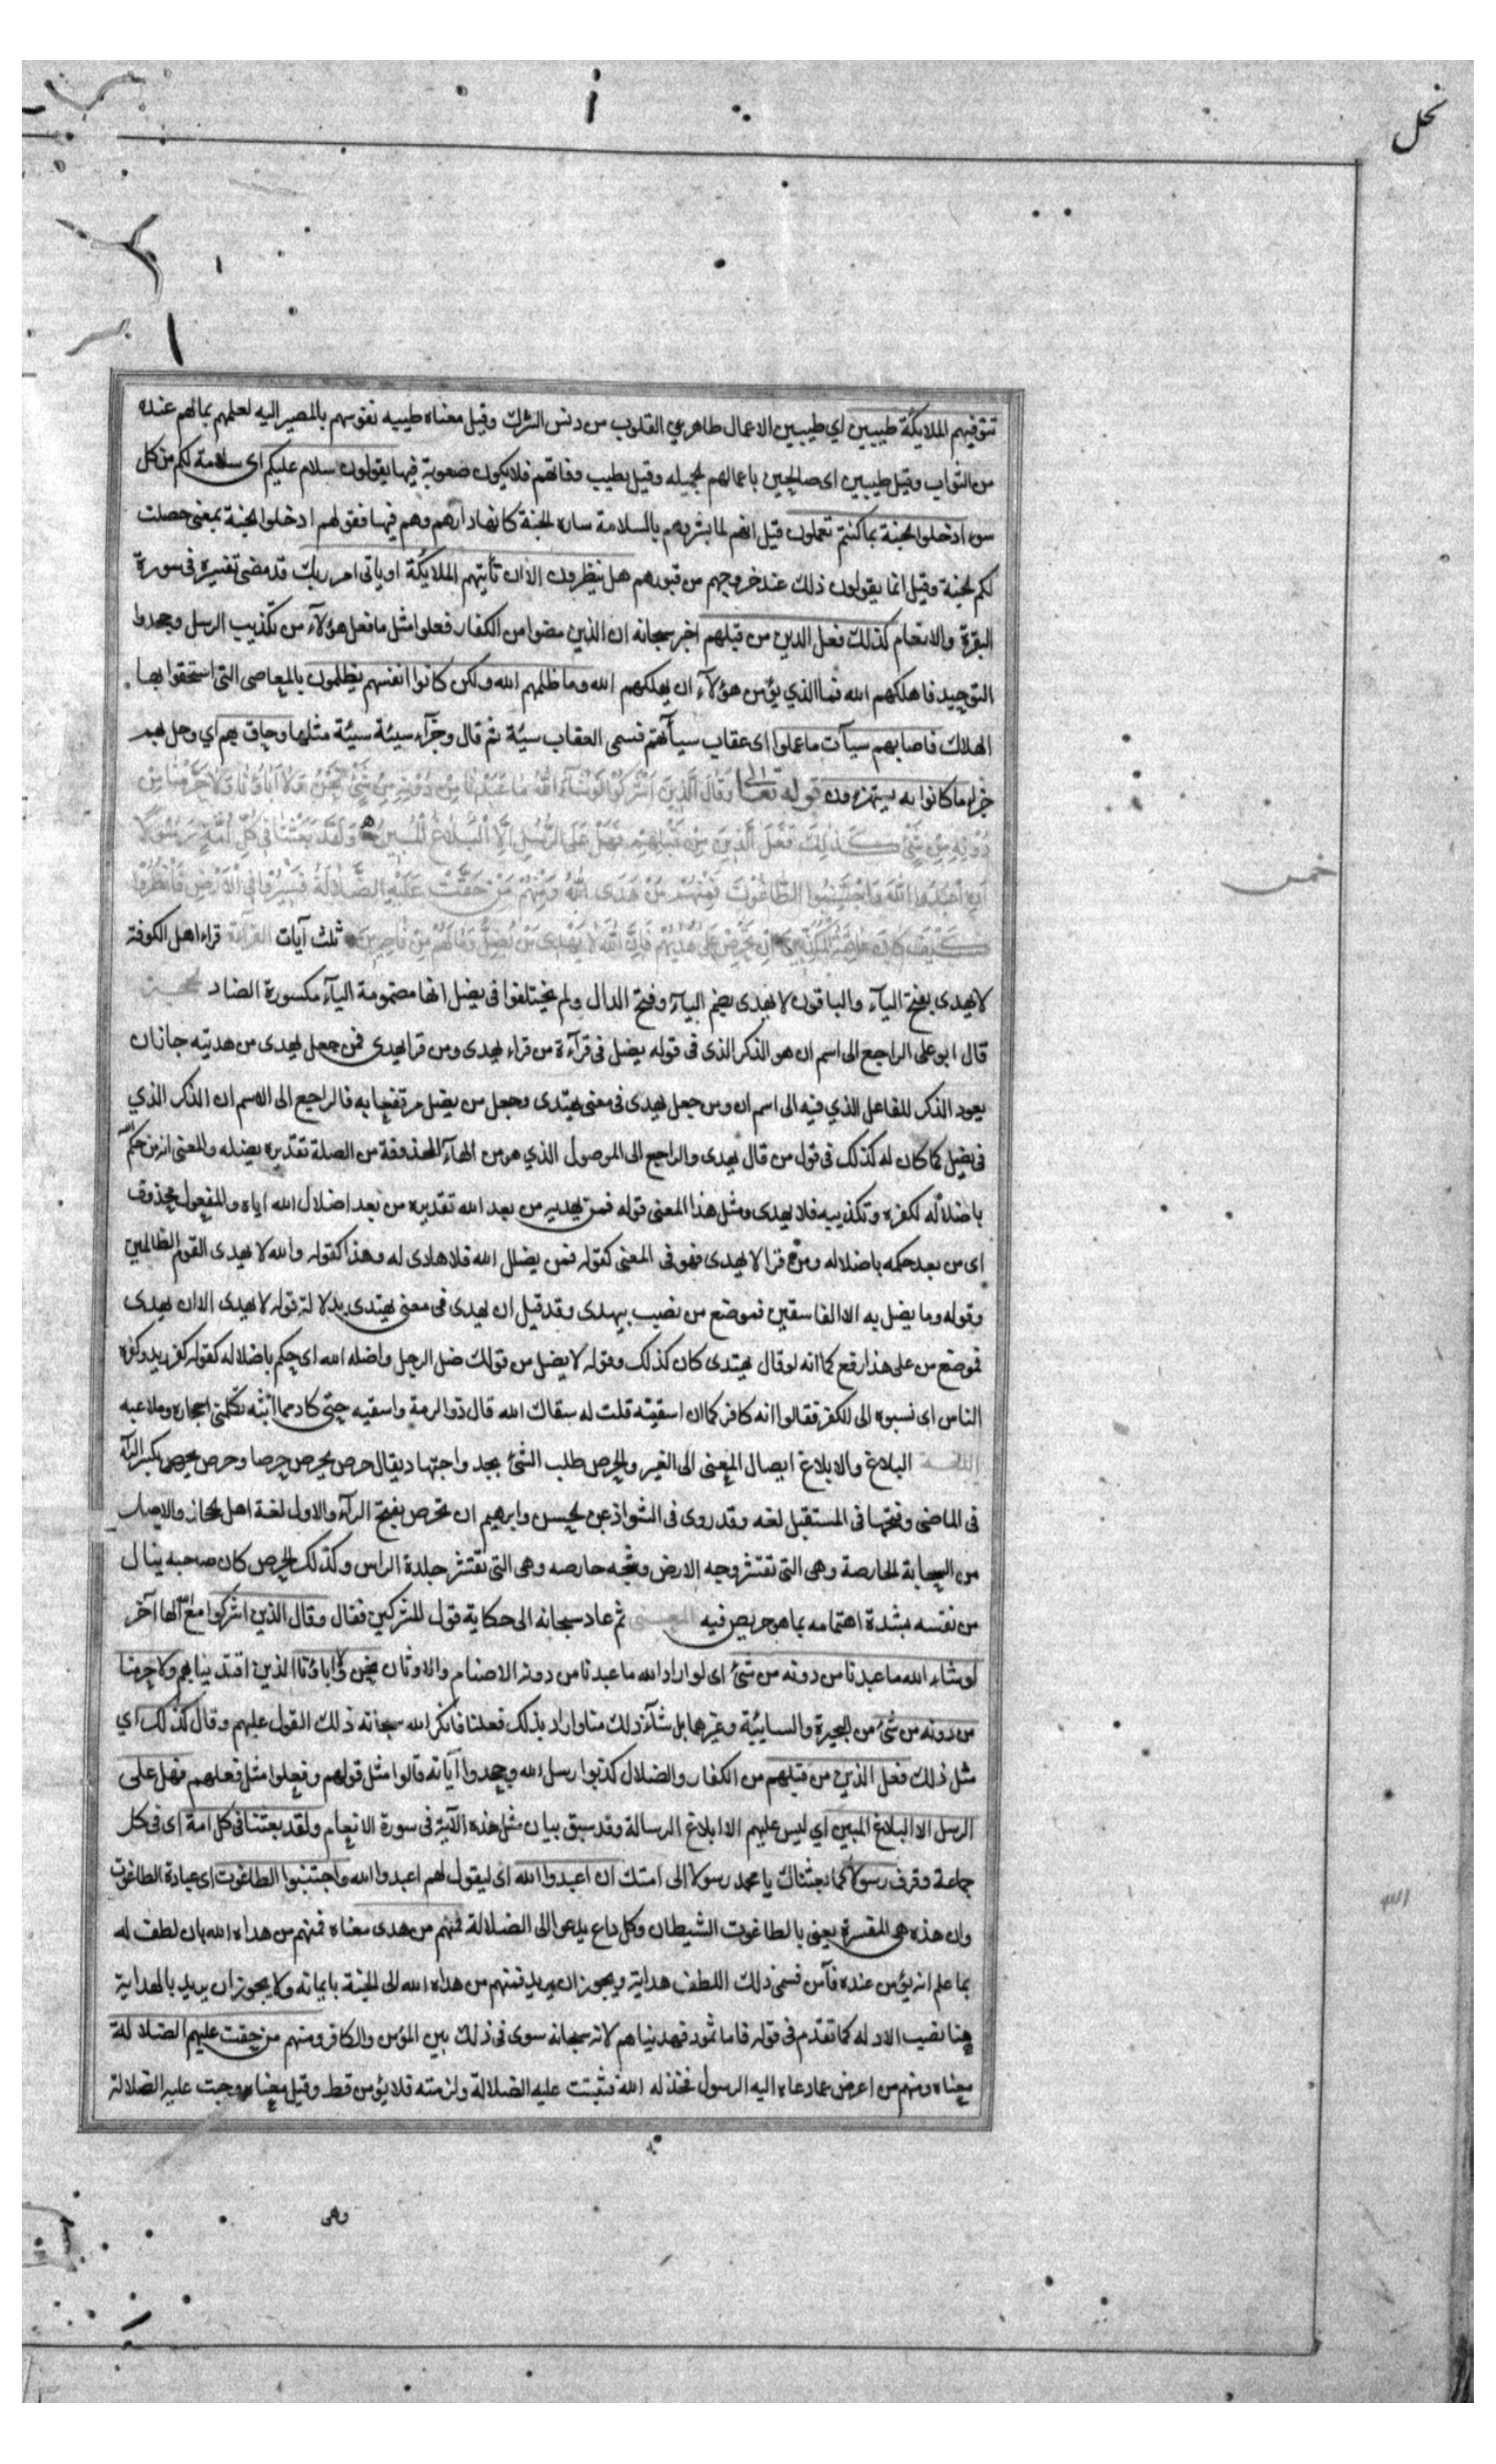 نحل
تتوفيهم الملايكة طيبين اي طيبين الاعمال طاهري القلوب من دنس الشرك وقيل معناه طيبه نفوسهم بالمصير اليه لعلمهم بمالهم عنده
من الثواب وقيل طيبين اى صالحين باعمالهم الجميله وقيل بطيب وفاتهم فلا يكون صعوبة فيها يقولون سلام عليكم اى سلامة لكم من كل
سوء ادخلوا الجنة بما كنتم تعملون قيل انهم لما بشروهم بالسلامة صارت الجنة كانها دارهم وهم فيها فقولهم ادخلوا الجنة بمعنى حصلت
لكم الجنة وقيل انما يقولون ذلك عند خروجهم من قبورهم هل ينظرون الا ان تأتيهم الملايكة او ياتى امر ربك قد مضى تفسيره فى سورة
البقرة والانعام كذلك فعل الذين من قبلهم اخبر سبحانه ان الذين مضوا من الكفار فعلوا مثل ما فعل هؤلآء من تكذيب الرسل وجحدوا
التوحيد فاهلكهم الله فما الذي يؤمن هؤلآء ان يهلكهم الله وما ظلمهم الله ولكن كانوا انفسهم يظلمون بالمعاصى التى استحقوا بها
الهلاك فاصابهم سيآت ما عملوا اى عقاب سيآتهم فسمى العقاب سيئة ثم قال وجزآء سيئة سيئة مثلها وحاق بهم اي وحل بهم
جزاء ما كانوا به يستهزءون قوله تعالى وَقَالَ الَّذِينَ اَشْرَكُوا لَوْ شَآءَ اللهُ مَا عَبَدْنَا مِنْ دُوْنِهِ مِنْ شَىْءٍ نَحْنُ وَلَا اٰبَاؤُنَا وَلَا حَرَّمْنَا مِنْ
دُوْنِهِ مِنْ شَىْءٍ كَذٰلِكَ فَعَلَ الَّذِينَ مِنْ قَبْلِهِمْ فَهَلْ عَلَى الرُّسُلِ اِلَّا الْبَلَاغُ الْمُبِينُ وَلَقَدْ بَعَثْنَا فِى كُلِّ اُمَّةٍ رَسُوْلًا
اَنِ اعْبُدُوا اللهَ وَاجْتَنِبُوا الطَّاغُوْتَ فَمِنْهُمْ مَنْ هَدَى اللهُ وَمِنْهُمْ مَنْ حَقَّتْ عَلَيْهِ الضَّلَالَةُ فَسِيْرُوْا فِى الْاَرْضِ فَانْظُرُوْا
كَيْفَ كَانَ عَاقِبَةُ الْمُكَذِّبِينَ اِنْ تَحْرِصْ عَلَى هُدٰيهُمْ فَاِنَّ اللهَ لَا يَهْدِى مَنْ يُضِلُّ وَمَا لَهُمْ مِنْ نَاصِرِيْنَ ثلث آيات القرآءة قراء اهل الكوفة
لا يهدى بفتح اليآء والباقون لا يهدى بضم اليآء وفتح الدال ولم يختلفوا فى يضل انها مضمومة اليآء مكسورة الضاد الحجة
قال ابو على الراجع الى اسم ان هو الذكر الذى فى قوله يضل فى قرآءة من قراء يهدى ومن قرا يهدى فمن جعل يهدى من هديته جاز ان
يعود الذكر للفاعل الذي فيه الى اسم ان ومن جعل يهدى فى معنى يهتدى وجعل من يضل مرتفعا به فالراجع الى الاسم ان الذكر الذي
فى يضل كما كان له كذلك فى قول من قال يهدى والراجع الى الموصول الذي هو من الهآء المحذوفة من الصلة تقديره يضله والمعنى ان من حكم
باضلاله لكفره وتكذيبه فلا يهدى ومثل هذا المعنى قوله فمن يهديه من بعد الله تقديره من بعد اضلال الله اياه والمفعول محذوف
اى من بعد حكمه باضلاله ومن قرا لا يهدى فهو فى المعنى كقوله فمن يضلل الله فلا هادى له وهذا كقوله والله لا يهدى القوم الظالمين
وقوله وما يضل به الا الفاسقين فموضع من نصب بيهدى وقد قيل ان يهدى فى معنى يهتدى بدلالة قوله لا يهدى الا ان يهدى
فموضع من على هذا رفع كما انه لو قال يهتدى كان كذلك وقوله لا يضل من قولك ضل الرجل واضله الله اى حكم باضلاله كقوله كفر زيد وكفره
الناس اى نسبوه الى الكفر فقالوا انه كافر كما ان اسقيته قلت له سقاك الله قال ذو الرمة واسقيه حتى كاد مما ابثه تكلمنى احجاره وملاعبه
اللغة البلاغ والابلاغ ايصال المعنى الى الغير والحرص طلب الشئ بجد واجتهاد يقال حرص يحرص حرصا وحرص يحرص بكسر الرآء
فى الماضى وفتحها فى المستقبل لغه وقد روى فى الشواذ عن الحسن وابرهيم ان تحرص بفتح الرآء والاول لغة اهل الحجاز والاصل
من السحابة الحارصة وهى التى تقشر وجه الارض وشجه حارصه وهى التى تقشر جلدة الراس وكذلك الحرص كان صاحبه ينال
من نفسه لشدة اهتمامه بما هو حريص فيه المعنى ثم عاد سبحانه الى حكاية قول المشركين فقال وقال الذين اشركوا مع الله الها آخر
لو شاء الله ما عبدنا من دونه من شئ اى لو اراد الله ما عبدنا من دونه الاصنام والاوثان نحن ولا اباؤنا الذين اقتدينا بهم ولا حرمنا
من دونه من شئ من البحيرة والسايئبة وغيرها بل شآء ذلك منا واراد بذلك فعلنا فانكر الله سبحانه ذلك القول عليهم وقال كذلك اي
مثل ذلك فعل الذين من قبلهم من الكفار والضلال كذبوا رسل الله وجحدوا آياته قالوا مثل قولهم وفعلوا مثل فعلهم فهل على
الرسل الا البلاغ المبين اي ليس عليهم الا ابلاغ الرسالة وقد سبق بيان مثل هذه الآية فى سورة الانعام ولقد بعثنا فى كل امة اى فى كل
جماعة وقرن رسولا كما بعثناك يا محمد رسولا الى امتك ان اعبدوا الله اى ليقول لهم اعبدوا الله واجتنبوا الطاغوت اى عبادة الطاغوت
وان هذه هى المفسرة يعنى بالطاغوت الشيطان وكل داع يدعوا الى الضلالة فمنهم من هدى معناه فمنهم من هداه الله بان لطف له
بما علم انه يؤمن عنده فآمن فسمى ذلك اللطف هداية ويجوز ان يريد فمنهم من هداه الله الى الجنة بايمانه ولا يجوز ان يريد بالهداية
هنا نصب الادله كما تقدم فى قوله فاما ثمود فهديناهم لانه سبحانه سوى فى ذلك بين المؤمن والكافر ومنهم من حقت عليهم الضلالة
معناه ومنهم من اعرض عما دعاه اليه الرسول فخذله الله فثبتت عليه الضلالة ولزمته فلا يؤمن قط وقيل معناه وجبت عليه الضلالة
وهى
خمس
الله